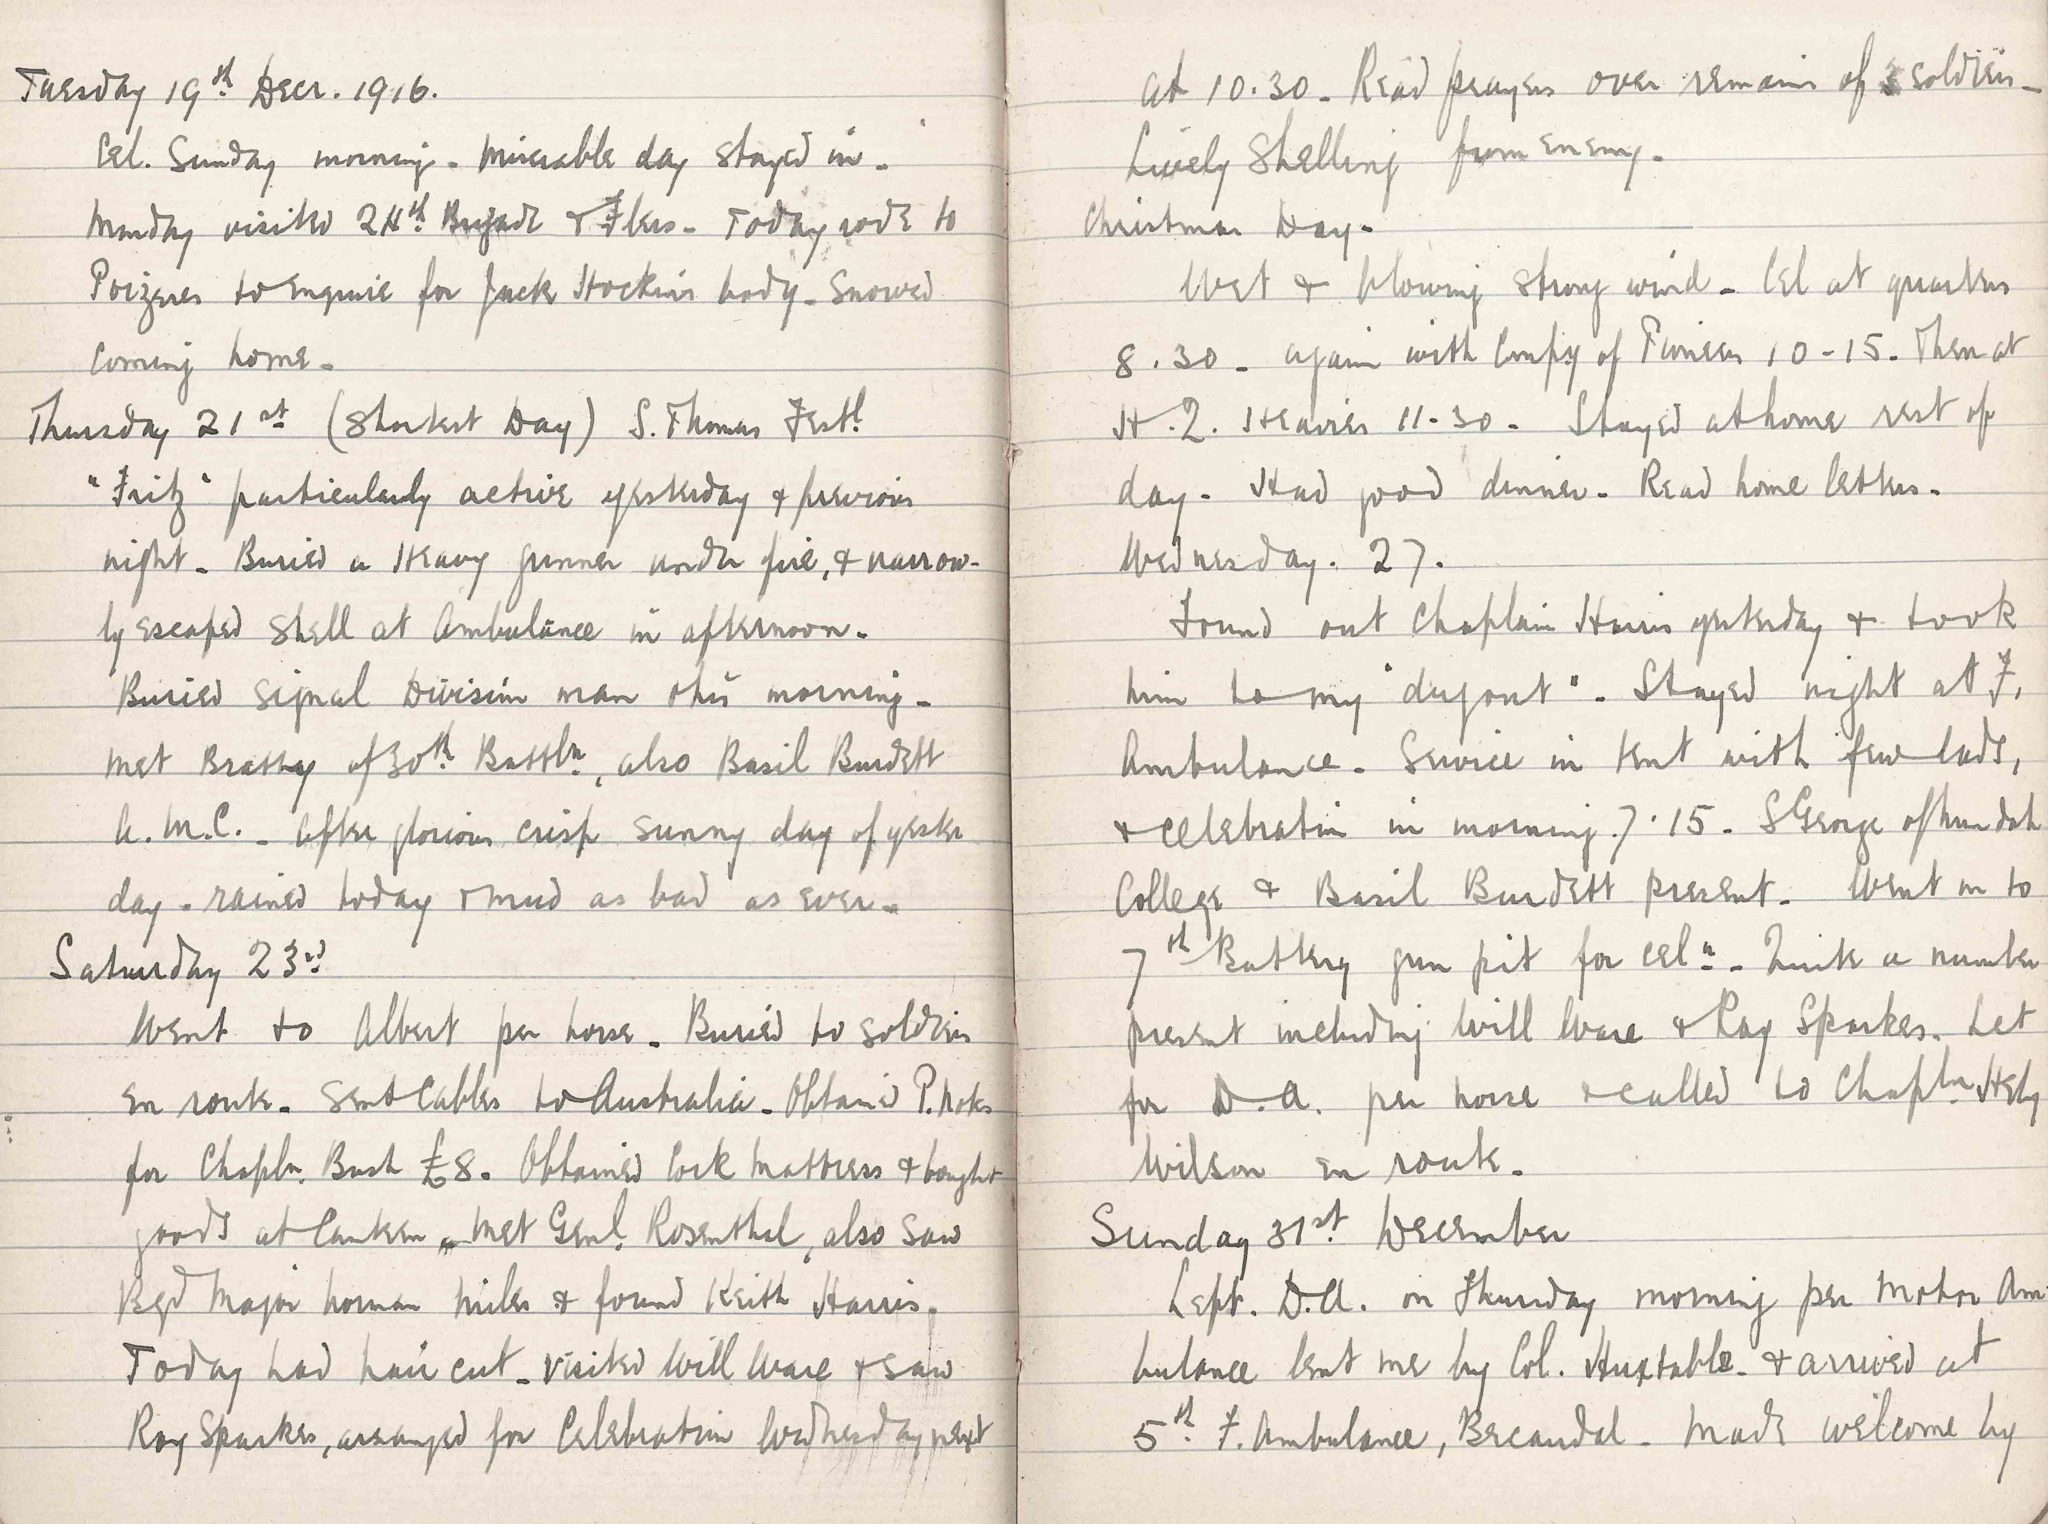 Tuesday 19th Decr. 1916.
Cel. Sunday morning. Miserable day stayed in.
Monday visited 24th Brigade & Flers. Today rode to
Poizeres to enquire for Jack Hockins body. Snowed
coming home.
Thursday 21st (Shortest Day) S. Thomas Festl.
"Fritz" particularly active yesterday & previous
night. Buried a Heavy gunner under fire, & narrow-
ly escaped shell at Ambulance in afternoon.
Buried Signal Division man this morning.
Met of 30th Battln, also Basil Burdett
A.M.C. After glorious crisp sunny day of yester
day - rained today & mud as bad as ever.
Saturday 23rd
Went to Albert per horse. Buried to soldiers
en route. Sent Cables to Australia. Obtained P. Notes
for Chapln. Bush £8. Obtained Cork Mattress & bought
goods at Canteen. Met Genl. Rosenthal, also saw
Bgd Major Norman Miles & found Keith Harris.
Today had hair cut. Visited Will Ware & saw
Roy Sparkes, arranged for Celebration Wednesday next
at 10.30. Read prayers over remains of 3 soldiers.
Lively shelling from enemy.
Christmas Day.
Wet & blowing strong wind. Cel at quarters
8.30. again with Compy of Pioneers 10-15. Then at
H.Q. Heavies 11-30. Stayed at home rest of
day. Had good dinner. Read home letters.
Wednesday. 27.
Found out Chaplain Harris yesterday & took
him to my "dugout". Stayed night at F.
Ambulance. Service in tent with few lads,
& celebration in morning 7.15. S George of
College & Basil Burdett present. Went on to
7th Battery gun pit for celn. Quite a number
present including Will Ware & Roy Sparkes. Let
for D.A. per horse & called to Chapln. Hely
Wilson en route.
Sunday 31st December
Left. D.A. on Thursday morning per Motor Am-
bulance lent me by Col. Huxtable. & arrived at
5th F. Ambulance, Becaudal. Made welcome by